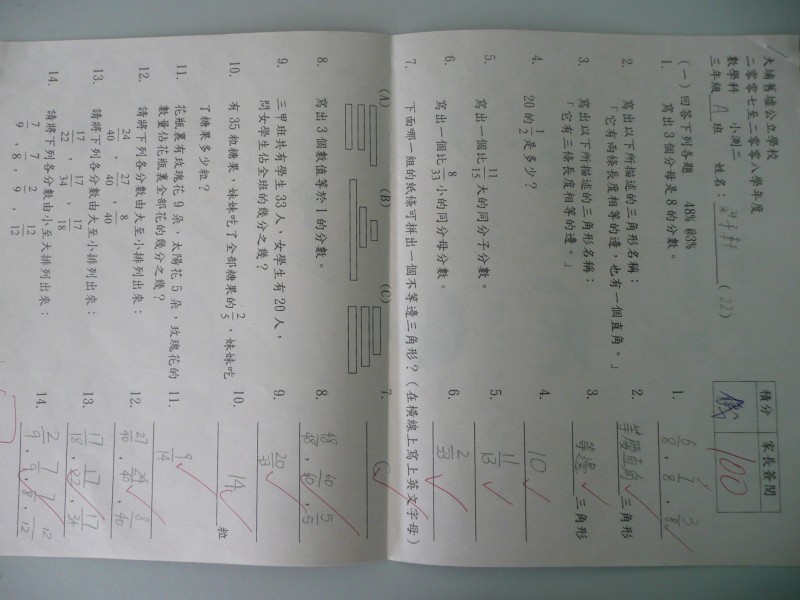 大埔舊墟公立學校
二零零七至二零零八學年度
數學科 小測二
三年級 A 班 姓名: (22)
積分 家長簽閱
100
(一) 回答下列各題 48% @3%
1. 寫出3個分母是8的分數。
1. 6/8, 1/8, 3/8
2. 寫出以下所描述的三角形名稱:
「它有兩條長度相等的邊,也有一個直角。」
2. 等腰直角三角形
3. 寫出以下所描述的三角形名稱:
「它有三條長度相等的邊。」
3. 等邊三角形
4. 20的1/2是多少?
4. 10
5. 寫出一個比11/15大的同分子分數。
5. 11/13
6. 寫出一個比8/33小的同分母分數。
6. 2/33
7. 下面哪一組的紙條可拼出一個不等邊三角形?(在橫線上寫上英文字母)
(A) (B) (C)
7. C
8. 寫出3個數值等於1的分數。
8. 48/48, 60/60, 5/5
9. 三甲班共有學生33人,女學生有20人,
問女學生佔全班的幾分之幾?
9. 20/33
10. 有35粒糖果,妹妹吃了全部糖果的2/5,妹妹吃
了糖果多少粒?
10. 14 粒
11. 花瓶裏有玫瑰花9朵,太陽花5朵,玫瑰花的
數量佔花瓶裏全部花的幾分之幾?
11. 9/14
12. 請將下列各分數由大至小排列出來:
24/40, 27/40, 8/40
12. 27/40, 24/40, 8/40
13. 請將下列各分數由大至小排列出來:
17/22, 17/34, 17/18
13. 17/18, 17/22, 17/34
14. 請將下列各分數由小至大排列出來:
7/9, 7/8, 2/9, 7/12
14. 2/9